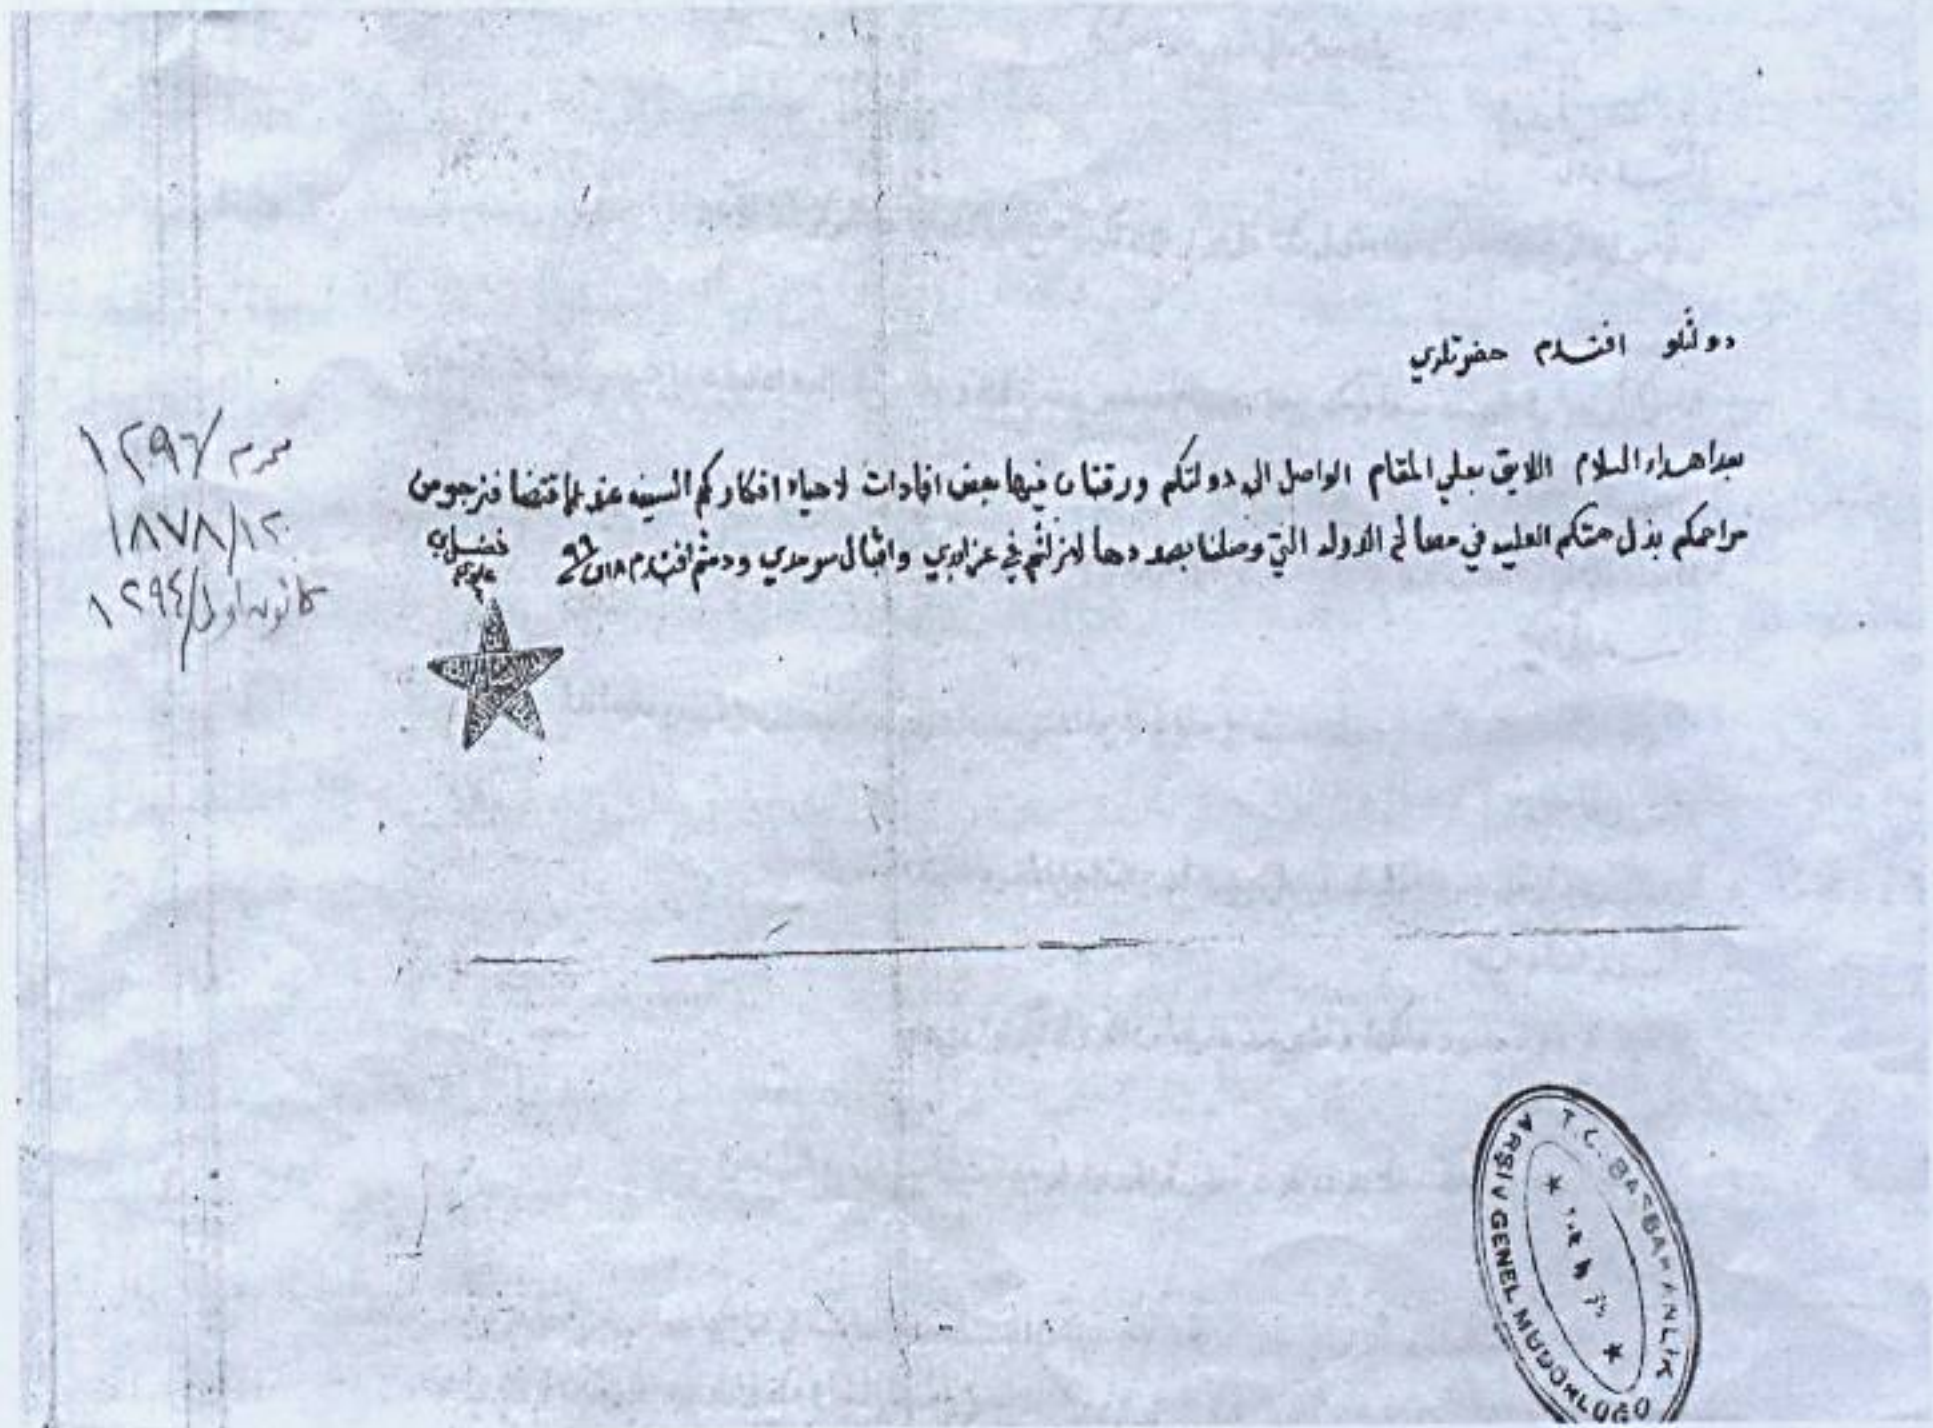 دولتلو افندم حضرتلري
بعد اهداء السلام اللايق بعلي المقام الواصل الى دولتكم ورقتان فيها بعض افادات لاحياء افكاركم السنيه عند ما اقتضا فنرجو من
مراحمكم بذل همتكم العليه في مصالح الدوله التي وصلنا بصددها لازلتم في عز ابدي واقبال سرمدي ودمتم افندم
فضل
علوي
محرم /١٢٩٦
١٨٧٨/١٢٠
كانون اول/١٢٩٤
T.C. BAŞBAKANLIK
ARŞİV GENEL MÜDÜRLÜĞÜ